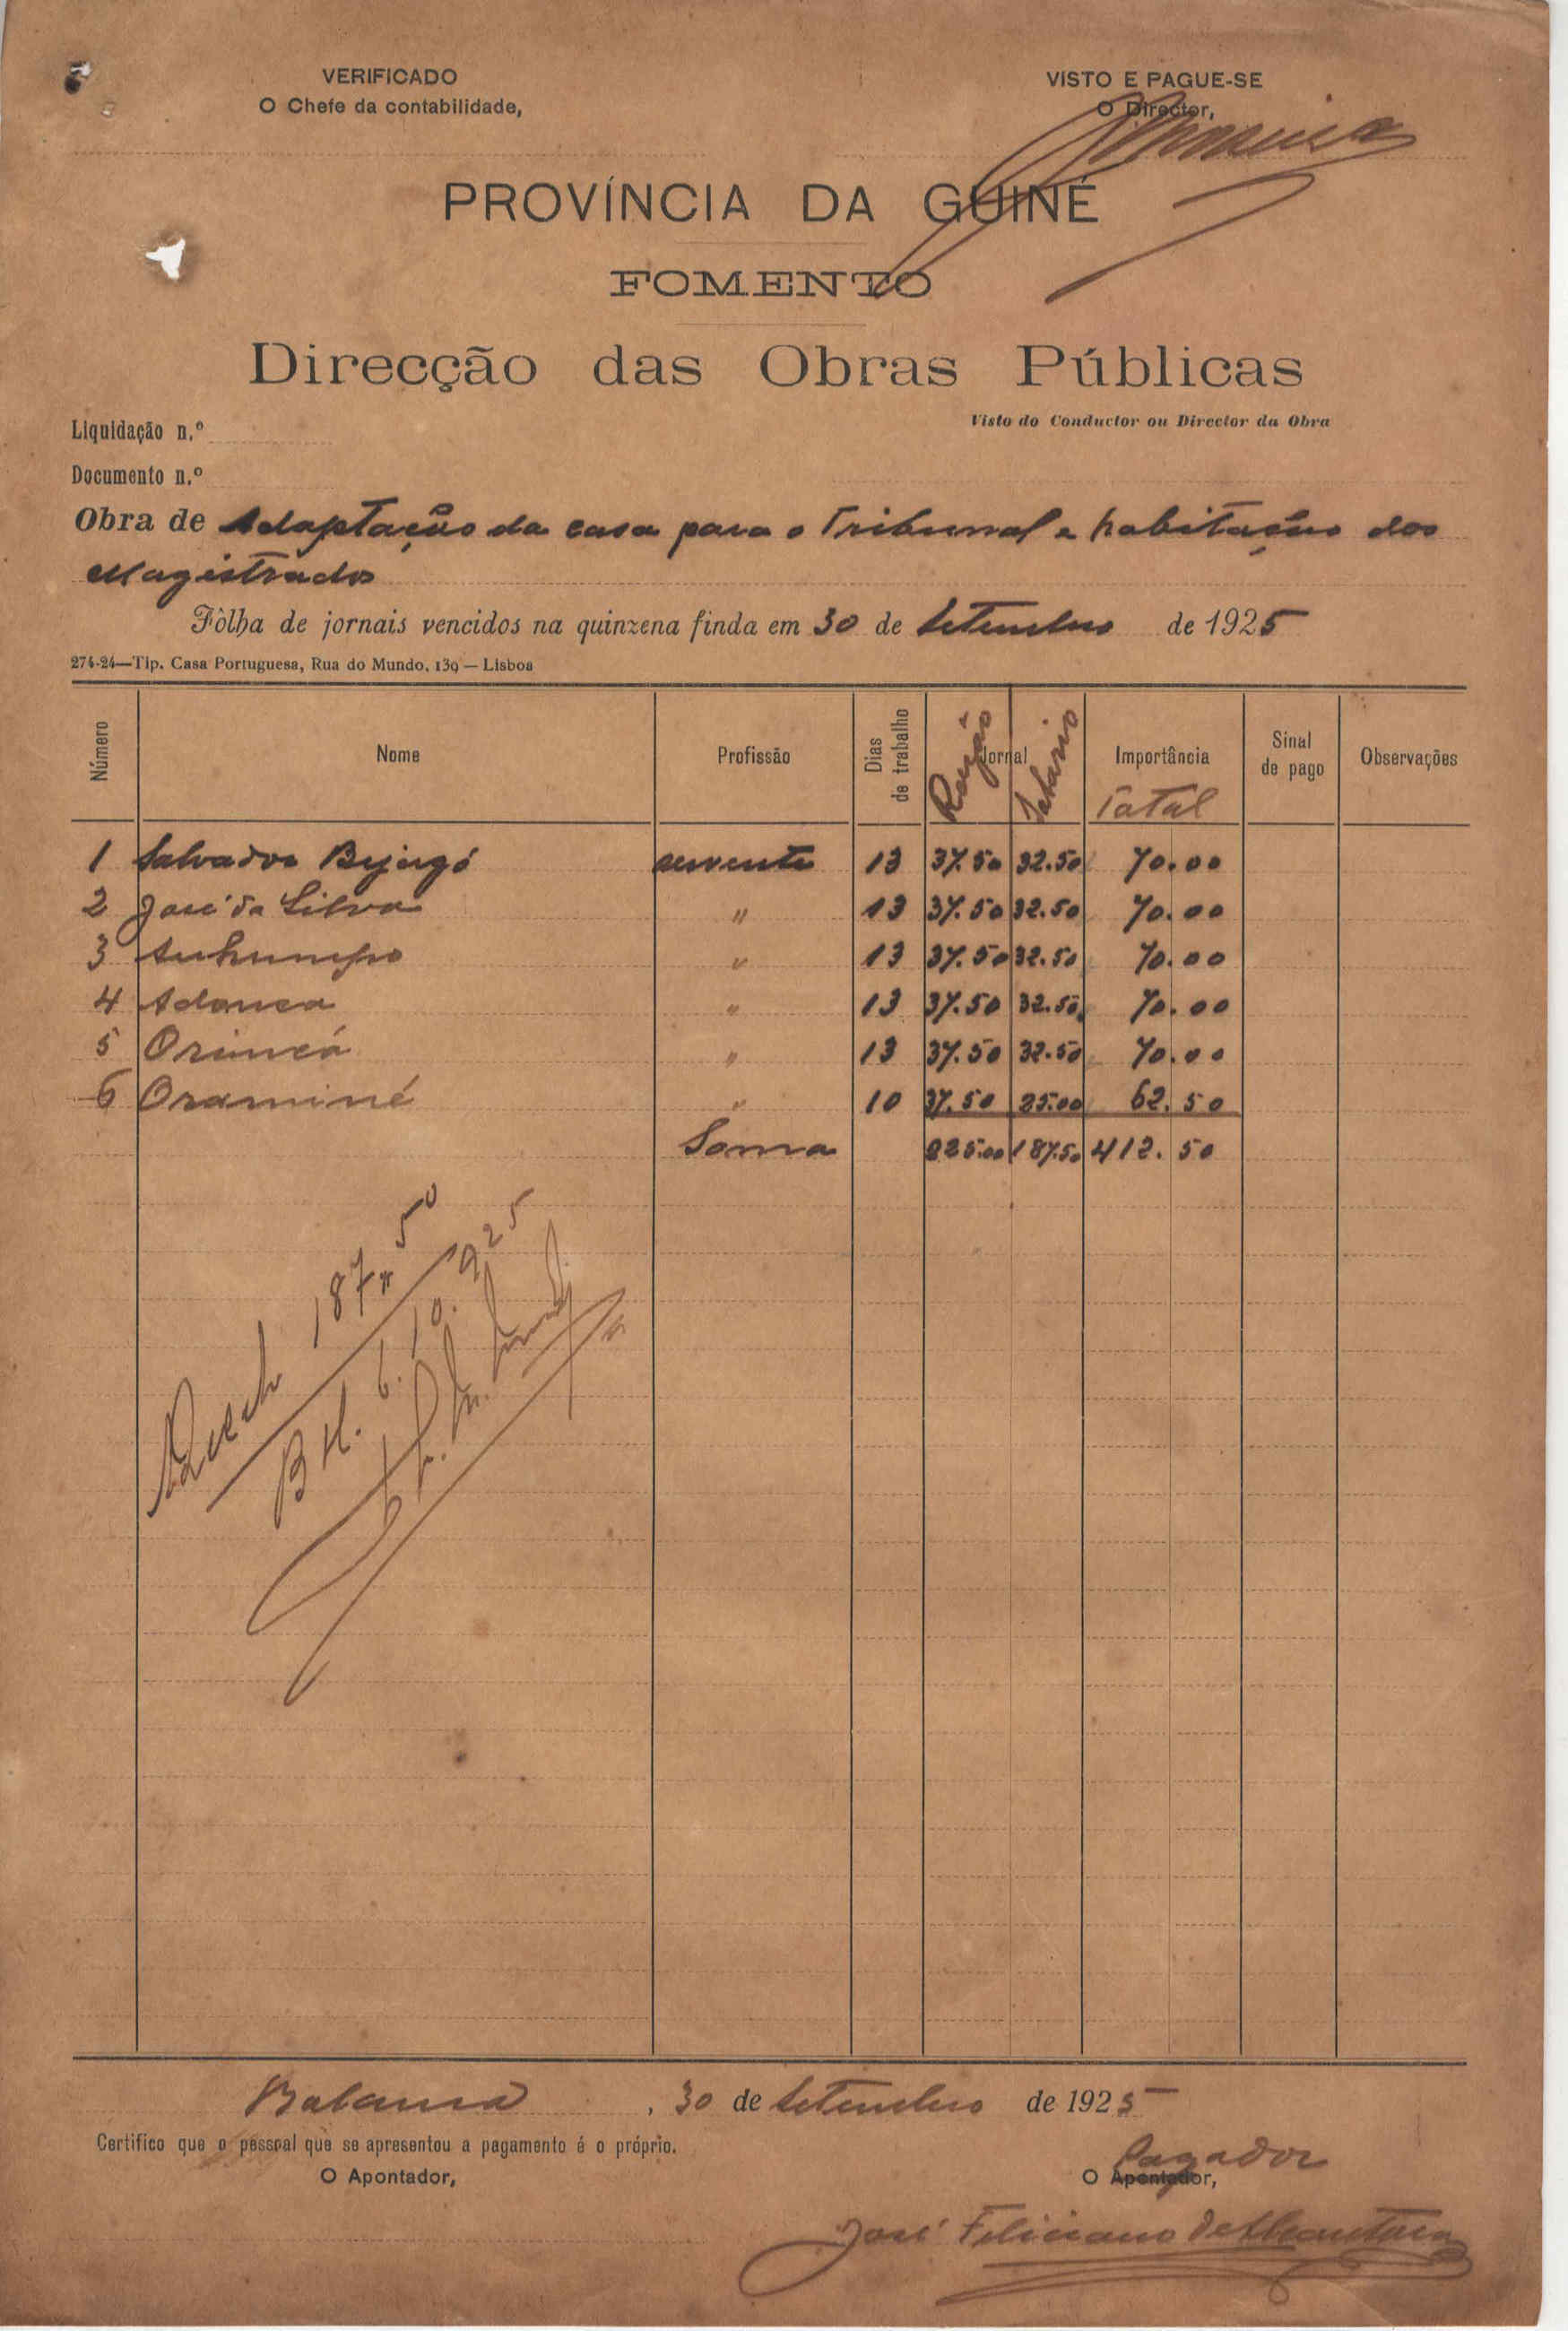 VERIFICADO
O Chefe da contabilidade,
VISTO E PAGUE-SE
O Director,
PROVÍNCIA DA GUINÉ
FOMENTO
Direcção das Obras Públicas
Liquidação n.º
Visto do Conductor ou Director da Obra
Documento n.º
Obra de Adaptação da casa para o Tribunal e habitação dos
Magistrados
Fôlha de jornais vencidos na quinzena finda em 30 de Setembro de 1925
274-24—Tip. Casa Portuguesa, Rua do Mundo, 139 — Lisboa
Número Nome Profissão Dias de trabalho Jornal Ração Salario Importância Total Sinal de pago Observações
1 Salvador Bijagó servente 13 37.50 32.50 70.00
2 José da Silva " 13 37.50 32.50 70.00
3 " 13 37.50 32.50 70.00
4 " 13 37.50 32.50 70.00
5 " 13 37.50 32.50 70.00
6 Oraminé " 10 37.50 25.00 62.50
Soma 225.00 187.50 412.50
187 50
6.10.925
Bolama, 30 de Setembro de 1925
Certifico que o pessoal que se apresentou a pagamento é o próprio.
O Apontador,
Pagador
O Apontador,
José Feliciano